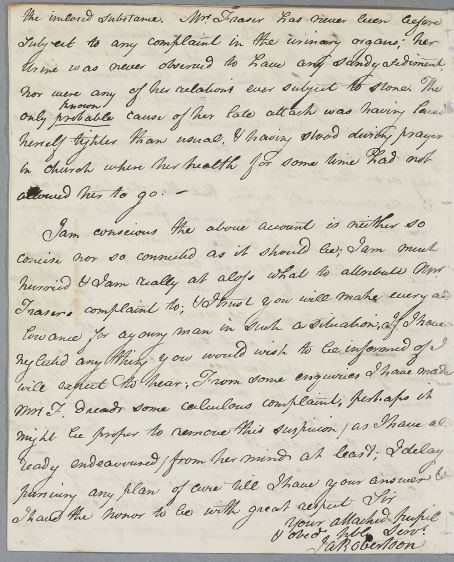 the inclosed substance. Mrs. Fraser has never been before
subject to any complaint in the urinary organs; her
Urine was never observed to have any sandy sediment
nor were any of her relations ever subject to stone. The
only probable known cause of her late attack was having laced
herself tighter than usual, & having stood during prayer
in church where her health for some time had not
allowed her to go. –
I am conscious the above account is neither so
concise nor so connected as it should be; I am much
hurried & I am really at a loss what to attribute Mrs
Frasers complaint to. & I trust you will make every al
lowance for a young man in such a situation; If I have
neglected any thing you would wish to be informed of I
will expect to hear; From some enquiries I have made
Mrs F. dreads some calculous complaint; perhaps it
might be proper to remove this suspicion, as I have al
ready endeavoured, from her mind at least; I delay
pursuing any plan of cure till I have your answer &
I have the honor to be with great respect Sir
Your attached pupil
& obedt. hble Servt.
Ja Robertson